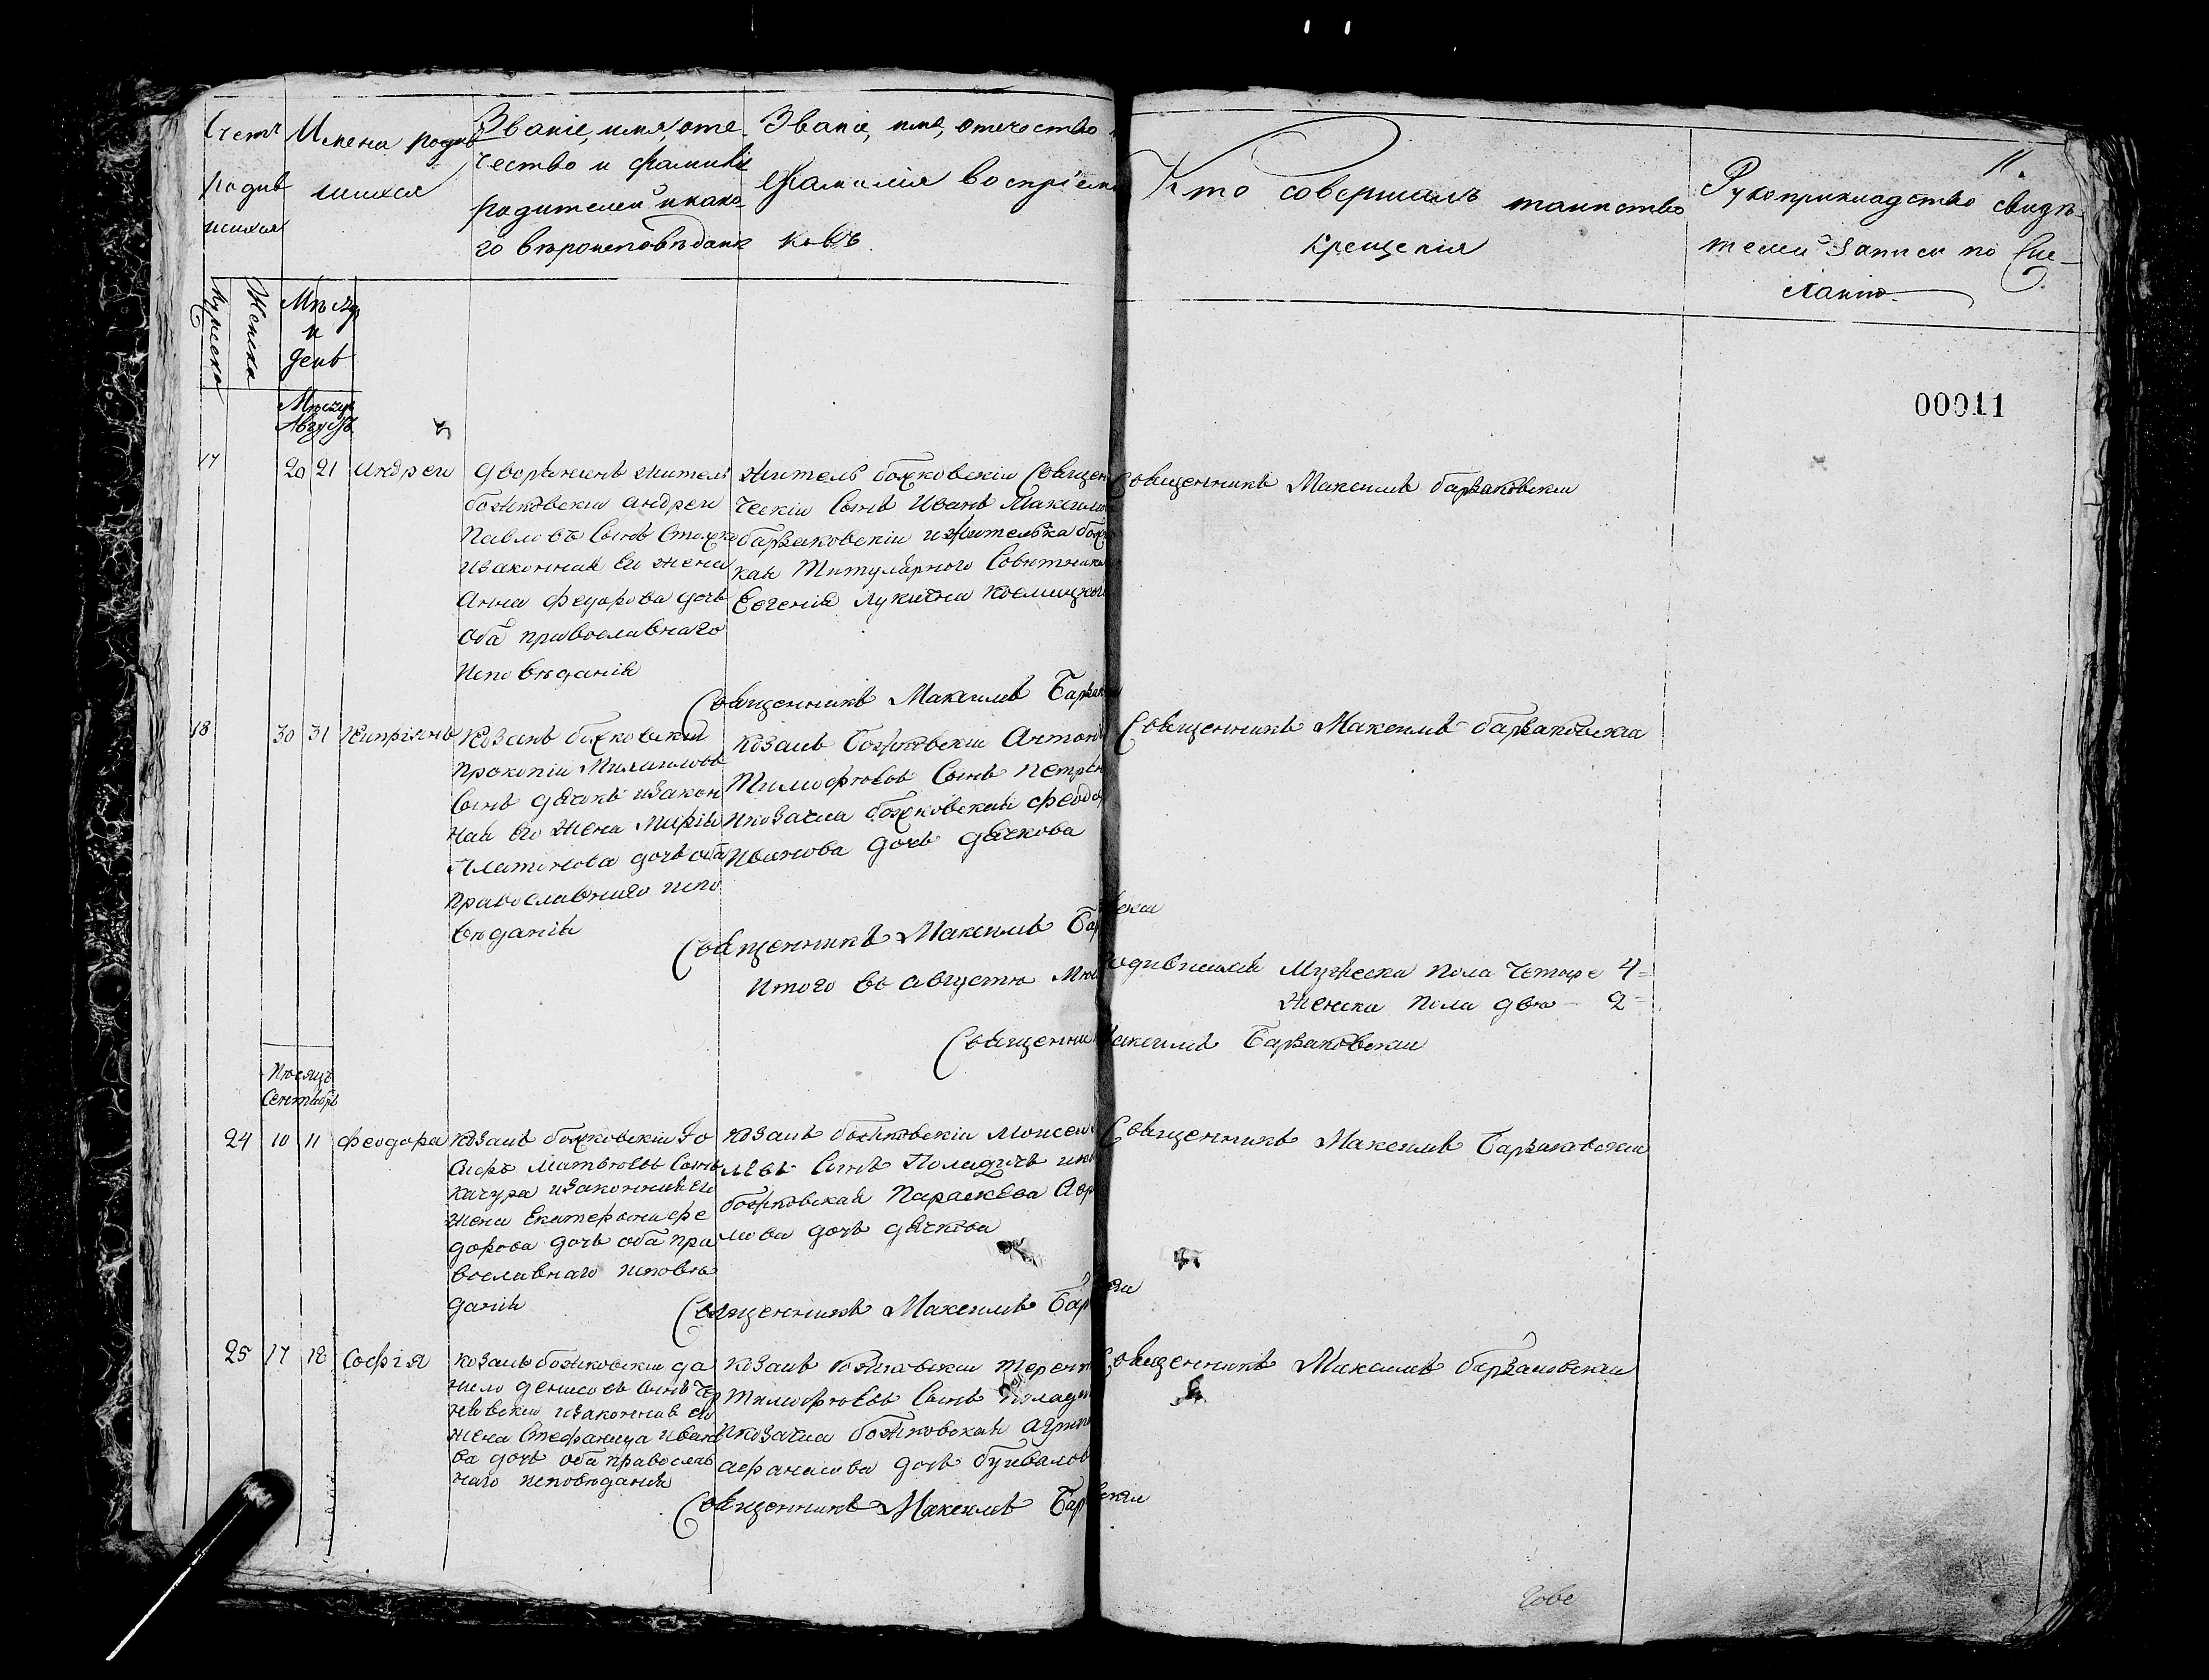 11.
Счетъ
родив
шихся
Имена родив
шихся
Званіе, имя, оте-
чество и фамилія
родителей и како-
го вѣроисповѣданія
Званіе, имя, отечество
и фамилія воспріемни
ковъ.
Кто совершалъ таинство
крещенія
Рукоприкладство свидѣ-
телей записи по
Мужеска
Женска
Мѣсяц
и
день
00011
Мѣсяцъ
Августъ
17
20 21
Андрей
дворянинъ житель
божковскій Андрей
Павловъ сынъ
изаконная его жена
Анна Федорова дочь
оба православнаго
исповѣданія
житель божковскій священ
ческій сынъ Иванъ Максимов
барзаковскій и жителька бож
кая Титулярного Совѣтника
Евгенія Лукична
Священникъ Максимъ барзаковскій
Священникъ Максимъ Барзаков
18
30 31
Кипріянъ
козакъ божковскій
Прокопій Михаиловъ
сынъ дячокъ изакон
ная его жена Марія
Платонова дочь оба
православнаго испо
вѣданія
козакъ божковскій Антонъ
Тимофѣевъ сынъ Петр
икозачка божковская Феодо
Іванова дочь дячкова
Священникъ Максимъ барзаковскій
Священникъ Максимъ Бар вскій
Итого въ августѣ Мѣс родившихся Мужеска пола четыре 4=
Женска пола двѣ – 2=
Священни Максимъ Барзаковскій
Мѣсяцъ
Сентябрь
24
10 11
Феодора
козакъ божковскій Іо
сифъ Матвѣевъ сынъ
качура изаконная его
жена Екатерина Фе
дорова дочь оба пра
вославнаго исповѣ
данія
козакъ божковскій Моисей
левъ сынъ Поладичъ ико
божковская Параскева Авр
мова дочь дячкова
Священникъ Максимъ Барзаковскій
Священникъ Максимъ Бар скій
25
17 18
Софія
козакъ божковскій да
нило денисовъ сынъ Чер
невскій изаконная его
жена Стефанида Івано
ва дочь оба православ
наго исповѣданія
козакъ божковскій Терент
Тимофѣевъ сынъ Полади
икозачка божковская Агрип
афанасова дочь
Священникъ Максимъ барзаковскій
Священникъ Максимъ Бар вскій